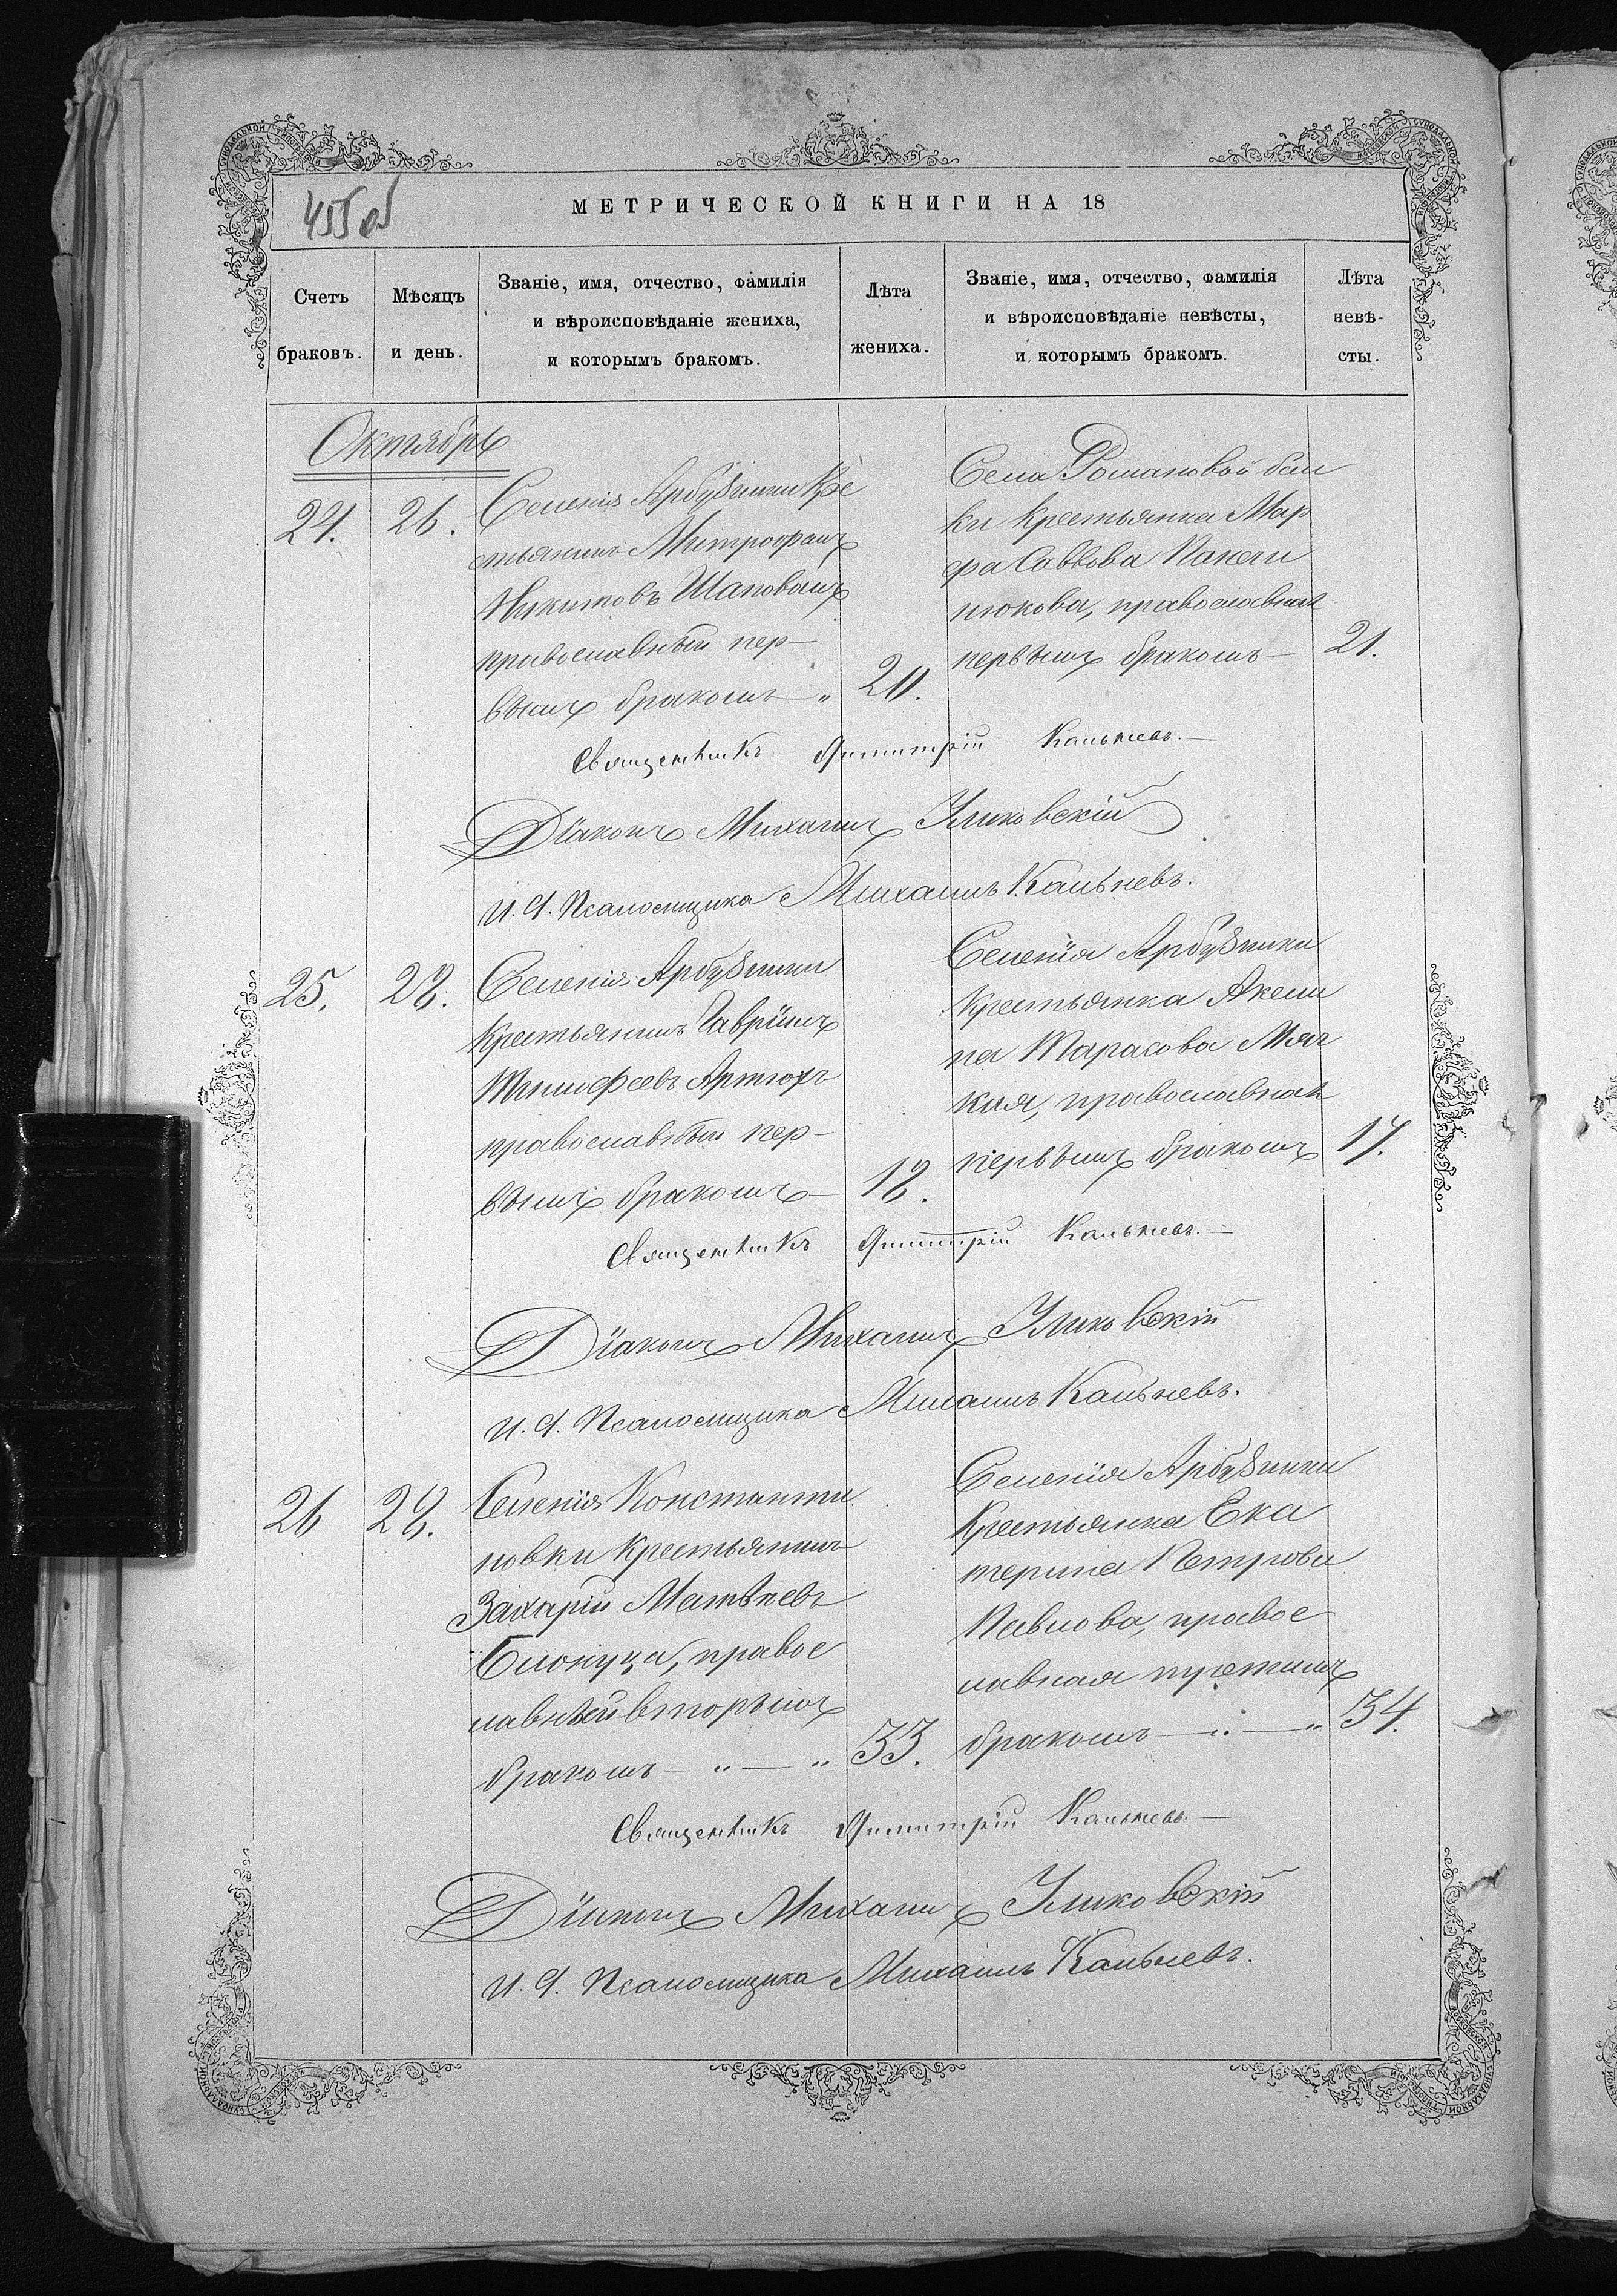 455 об
МЕТРИЧЕСКОЙ КНИГИ НА 18
Счетъ браковъ.
Мѣсяцъ и день.
Званіе, имя, отчество, фамилія
и вѣроисповѣданіе жениха,
и которымъ бракомъ.
Лѣта
жениха.
Званіе, имя, отчество, фамилія
и вѣроисповѣданіе невѣсты,
и которымъ бракомъ.
Лѣта
невѣ-
сты.
Октябрь
24.
26.
Селенія Арбузинки Кре
стьянинъ Митрофанъ
Никитовъ Шаповалъ
православный пер-
вымъ бракомъ „
20.
Села Романовой бал
ки крестьянка Мар
фа Саввова
нюкова, православная
первымъ бракомъ —
21.
Священникъ Димитрій Кальневъ. —
Діаконъ Михаилъ Уликовскій
И. д. Псаломщика Михаилъ Кальневъ.
25.
28.
Селенія Арбузинки
Крестьянинъ Гавріилъ
Тимофеевъ Артюхъ
православный пер-
вымъ бракомъ —
18.
Селенія Арбузинки
Крестьянка Акели
на Тарасова Мяг
кая, православная
первымъ бракомъ
17.
Священникъ Димитрій Кальневъ. —
Діаконъ Михаилъ Уликовскій
И. д. Псаломщика Михаилъ Кальневъ.
26
28.
Селенія Константи
новки крестьянинъ
Захарій Матвѣевъ
Билокуца, правос
лавный вторымъ
бракомъ — „ — „
33.
Селенія Арбузинки
Крестьянка Ека
терина Петрова
Павлова, правос
лавная третимъ
бракомъ — „ — „
34.
Священникъ Димитрій Кальневъ. —
Діаконъ Михаилъ Уликовскій
И. д. Псаломщика Михаилъ Кальневъ.